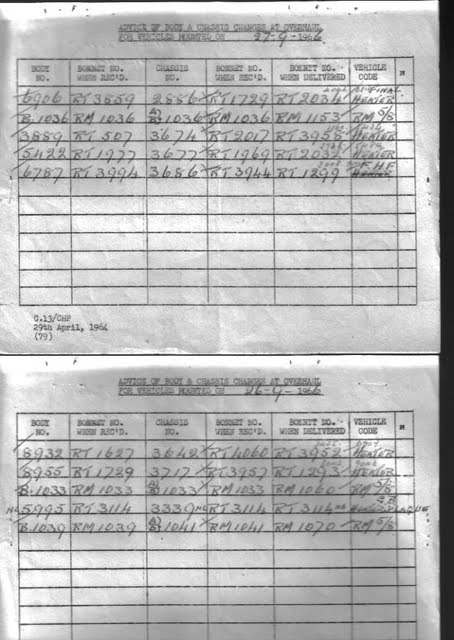 ADVICE OF BODY & CHASSIS CHANGES AT OVERHAUL
FOR VEHICLES MOUNTED ON 27-9-1966
BODY NO. BONNET NO. WHEN REC'D. CHASSIS NO. BONNET NO. WHEN REC'D. BONNET NO. WHEN DELIVERED VEHICLE CODE
6906 RT 3859 2886 RT 1729 RT 2034 HEATER
B.1036 RM 1036 1036 RM 1036 RM 1153 RM 5/8
3889 RT 507 3674 RT 2017 RT 3958 HEATER
5422 RT 1977 3677 RT 1969 HEATER
6787 RT 3994 3686 RT 3944 RT 1299 F.H.F HEATER
C.13/CHP
29th April, 1964
(79)
ADVICE OF BODY & CHASSIS CHANGES AT OVERHAUL
FOR VEHICLES MOUNTED ON 26-9-1966
BODY NO. BONNET NO. WHEN REC'D. CHASSIS NO. BONNET NO. WHEN REC'D. BONNET NO. WHEN DELIVERED VEHICLE CODE
8932 RT 1627 3642 RT 4060 RT 3952 HEATER
8955 RT 1729 3717 RT 3957 RT 1293 HEATER
B.1033 RM 1033 1033 RM 1033 RM 1060 RM 5/8
NC 5995 RT 3114 3339 NC RT 3114 RT 3114 NC
B.1039 RM 1039 1041 RM 1041 RM 1070 RM 5/8